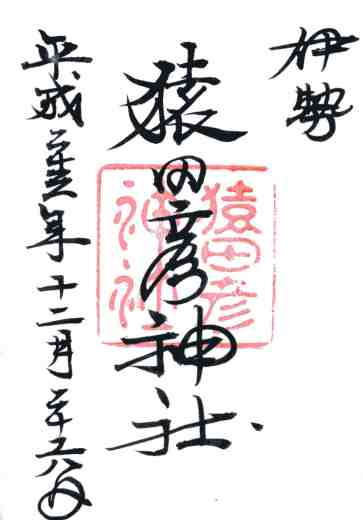 伊勢
猿田彦神社
平成二十五年十二月二十六日
猿田彦
神社